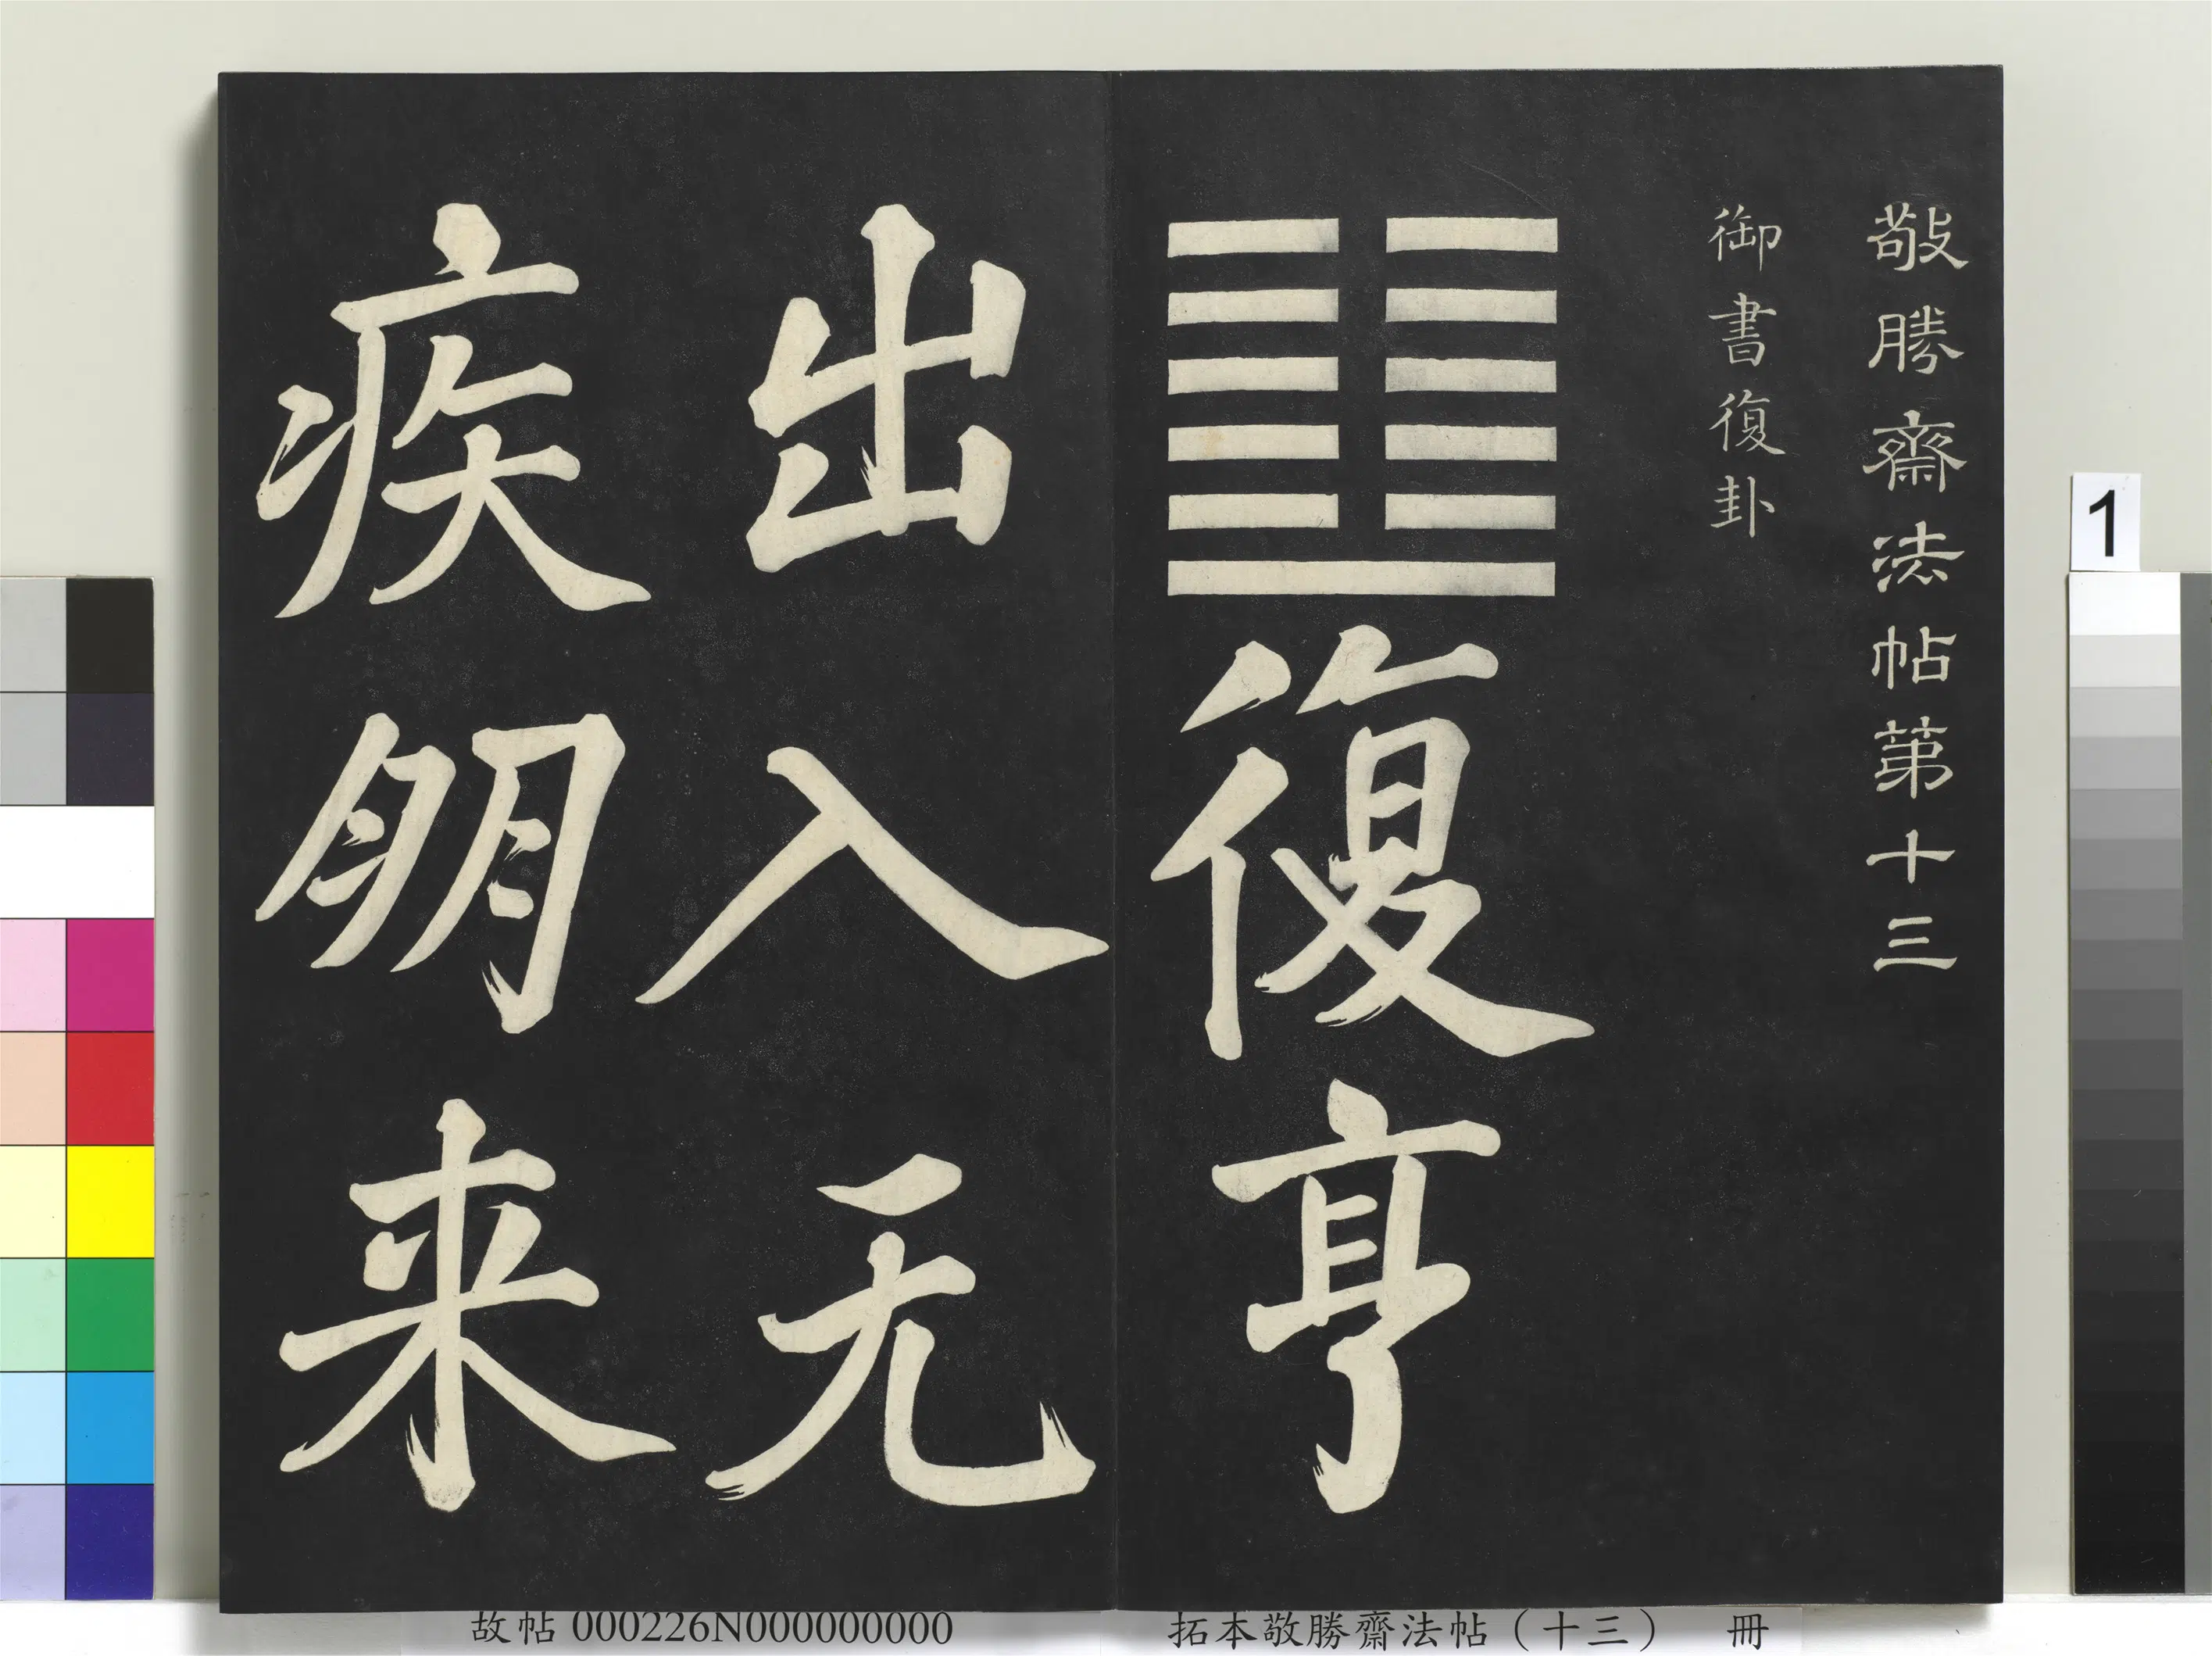 敬勝齋法帖第十三
御書復卦
復亨
出入无
疾朋来
1
故帖 000226N000000000
拓本敬勝齋法帖（十三） 冊